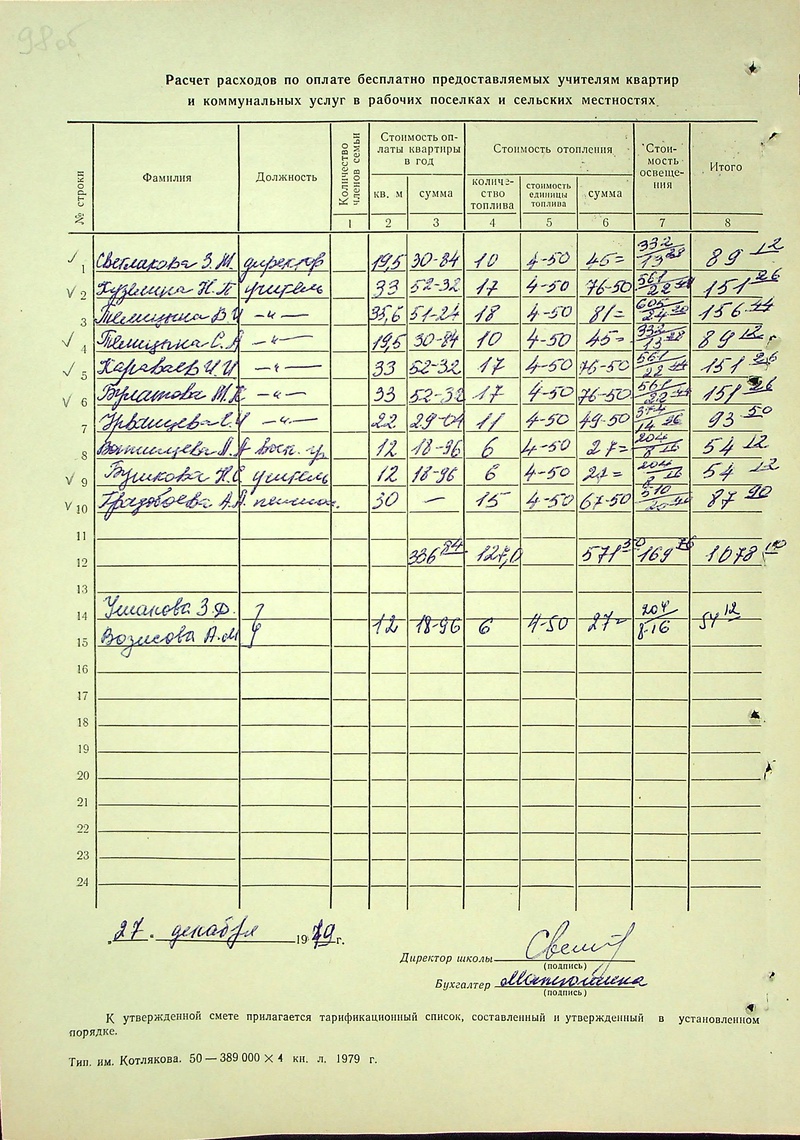 98 об.
Расчет расходов по оплате бесплатно предоставляемых учителям квартир
и коммунальных услуг в рабочих поселках и сельских местностях.
№ строки Фамилия Должность Количество членов семьи Стоимость оплаты квартиры в год Стоимость отопления Стоимость освещения Итого
кв. м сумма количество топлива стоимость единицы топлива сумма
1 2 3 4 5 6 7 8
1 Светлакова З.М. директор 19,5 30-84 10 4-50 45= 332/13 28 89 12
2 Кузьмина Н.П учитель 33 52-32 17 4-50 76-50 561/22 44 151 26
3 В.И -"- 35,6 51-24 18 4-50 81= 605/24 20 156 44
4 С.А -"- 19,5 30-84 10 4-50 45= 332/13 28 89 12
5 Караваев И.И -"- 33 52-32 17 4-50 76-50 561/22 44 151 26
6 Булатова М.К -"- 33 52-32 17 4-50 76-50 561/22 44 151 26
7 -"- 22 29-04 11 4-50 49-50 374/14 96 93 50
8 12 18-96 6 4-50 27= 204/8 16 54 12
9 Бушкова Н.С учитель 12 18-96 6 4-50 27= 204/8 16 54 12
10 А.А. 30 — 15 4-50 67-50 510/20 40 87 90
11
12 336 84 127,0 571 50 169 76 1078 10
13
14 Ушакова З.Ф. ?
15 Возисова А.М ? 12 18-96 6 4-50 27= 204/8-16 54 12
16
17
18
19
20
21
22
23
24
„27" декабря 1979 г.
Директор школы
(подпись)
Бухгалтер
(подпись)
К утвержденной смете прилагается тарификационный список, составленный и утвержденный в установленном
порядке.
Тип. им. Котлякова. 50—389 000×4 кн. л. 1979 г.